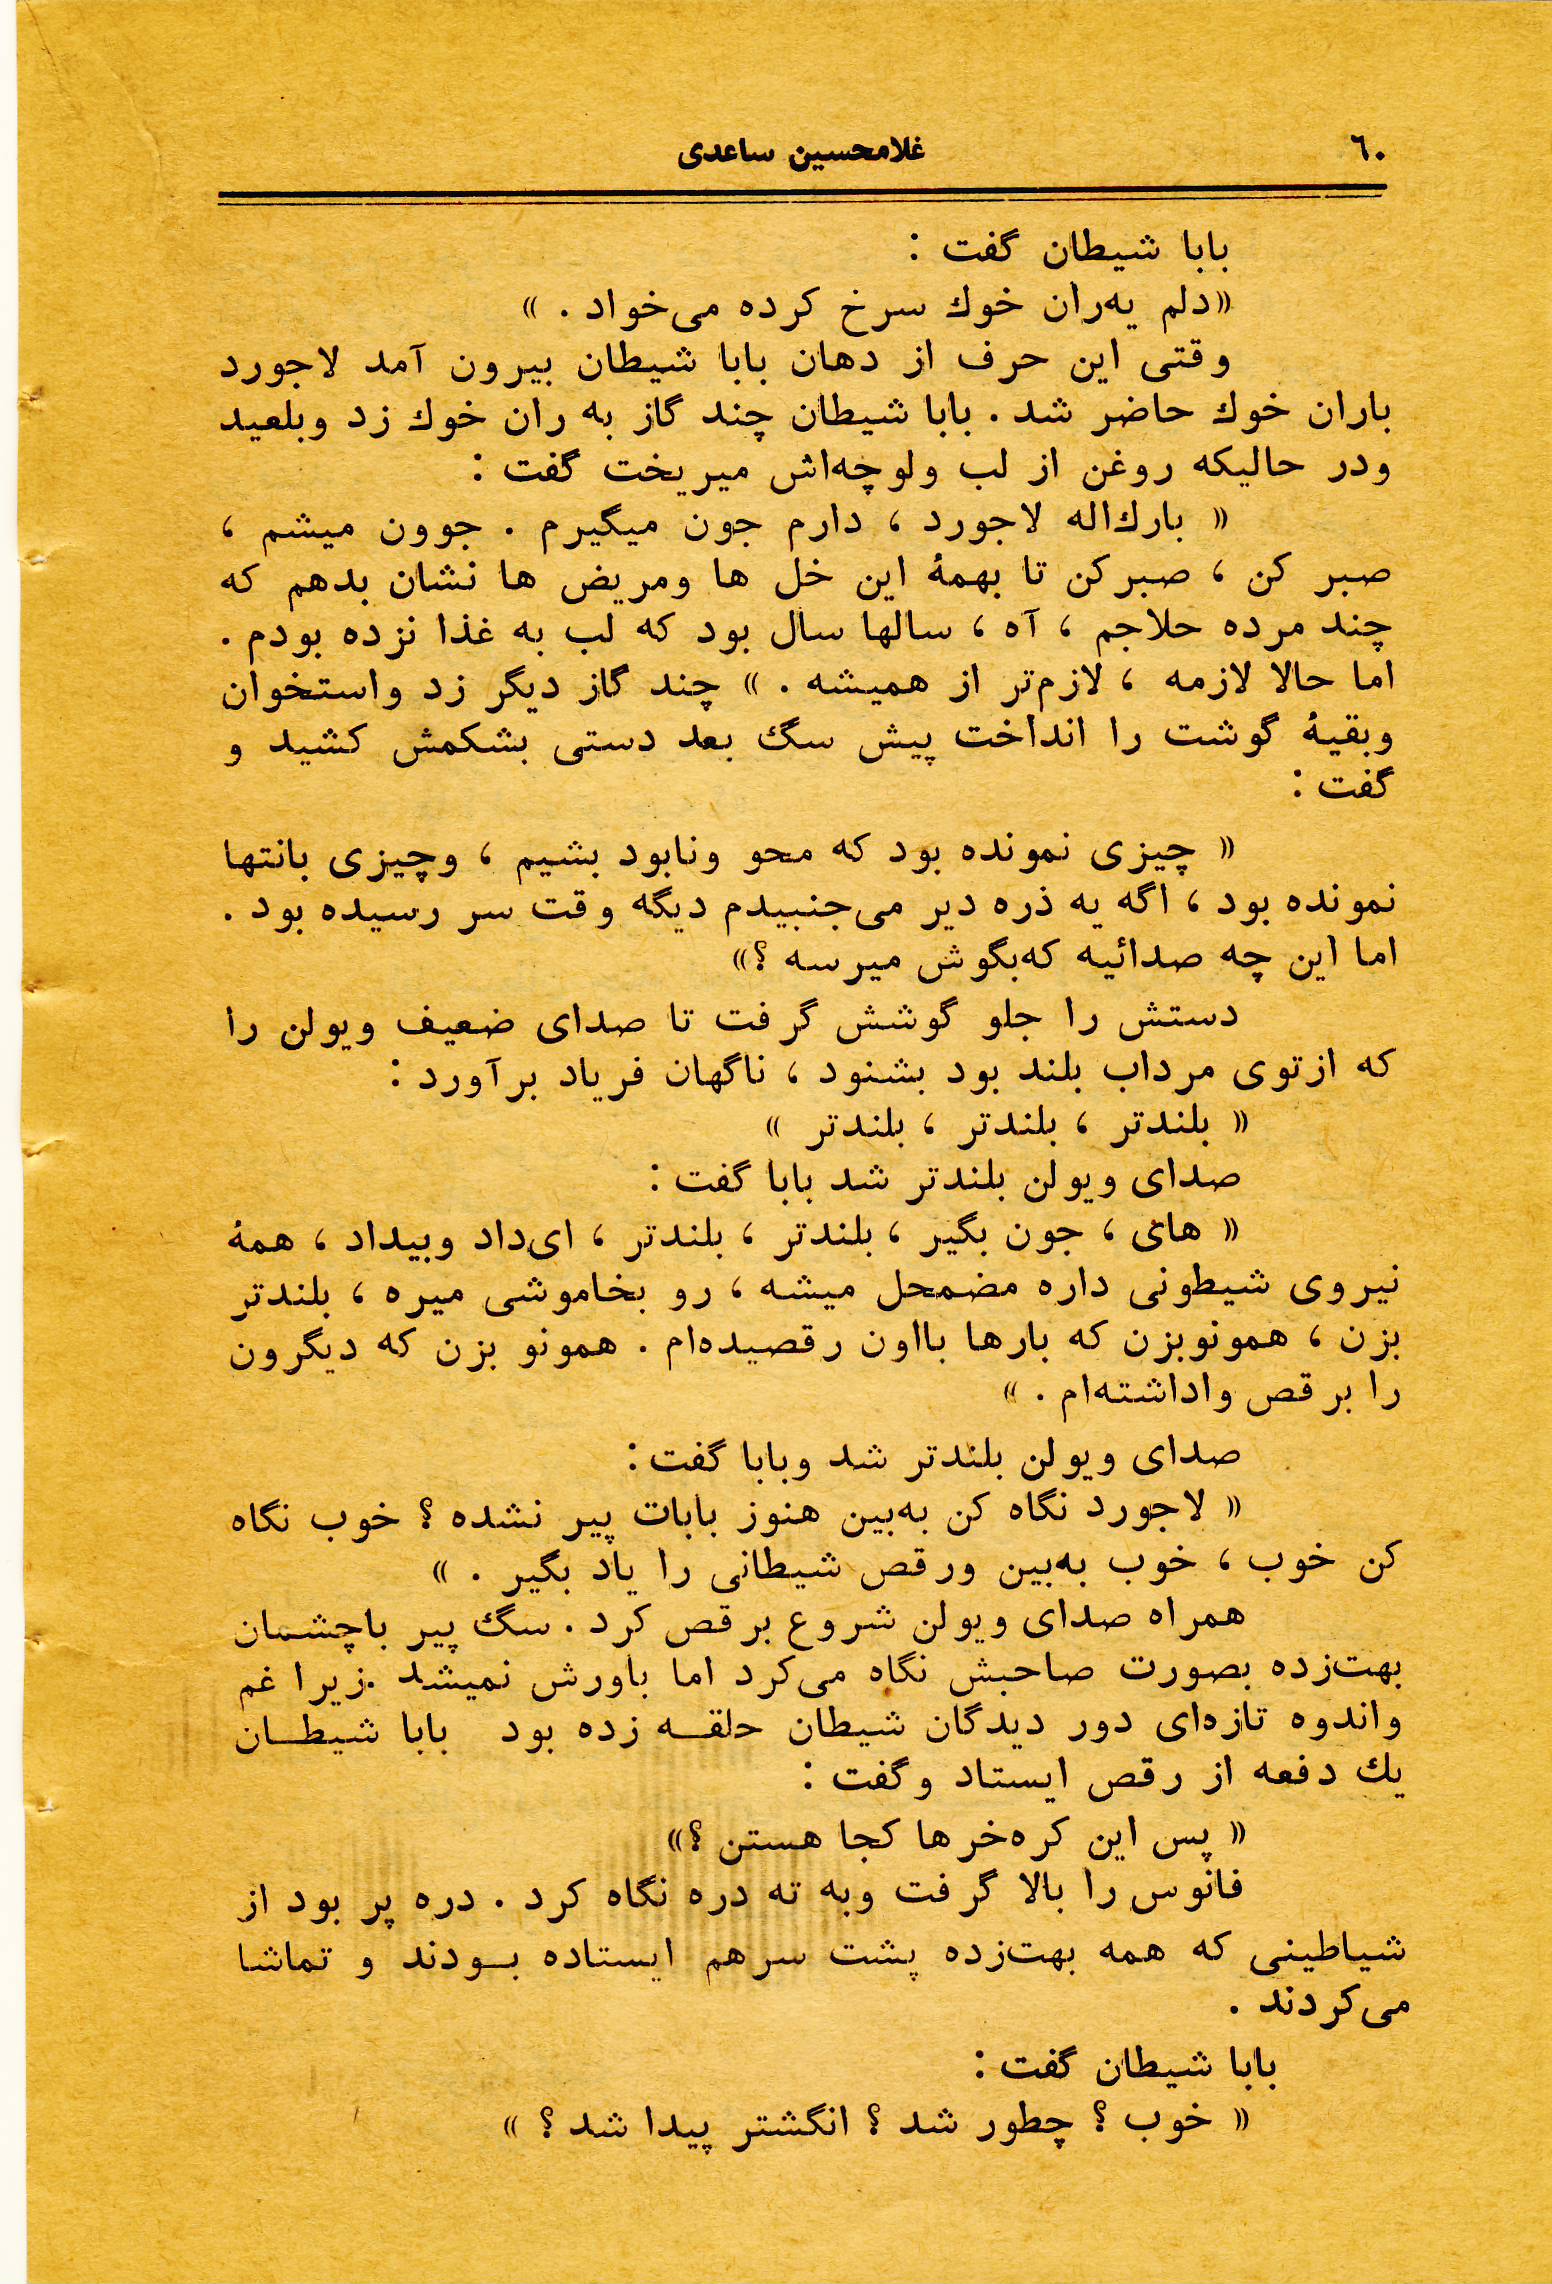 ٦٠
غلامحسین ساعدی
بابا شیطان گفت :
«دلم یه‌ران خوك سرخ کرده می‌خواد . »
وقتی این حرف از دهان بابا شیطان بیرون آمد لاجورد
باران خوك حاضر شد . بابا شیطان چند گاز به ران خوك زد وبلعید
ودر حالیکه روغن از لب ولوچه‌اش میریخت گفت :
« بارك‌اله لاجورد ، دارم جون میگیرم . جوون میشم ،
صبر کن ، صبرکن تا بهمهٔ این خل ها ومریض ها نشان بدهم که
چند مرده حلاجم ، آه ، سالها سال بود که لب به غذا نزده بودم .
اما حالا لازمه ، لازم‌تر از همیشه . » چند گاز دیگر زد واستخوان
وبقیهٔ گوشت را انداخت پیش سگ بعد دستی بشکمش کشید و
گفت :
« چیزی نمونده بود که محو ونابود بشیم ، وچیزی بانتها
نمونده بود ، اگه یه ذره دیر می‌جنبیدم دیگه وقت سر رسیده بود .
اما این چه صدائیه که‌بگوش میرسه ؟»
دستش را جلو گوشش گرفت تا صدای ضعیف ویولن را
که ازتوی مرداب بلند بود بشنود ، ناگهان فریاد برآورد :
« بلندتر ، بلندتر ، بلندتر »
صدای ویولن بلندتر شد بابا گفت :
« های ، جون بگیر ، بلندتر ، بلندتر ، ای‌داد وبیداد ، همهٔ
نیروی شیطونی داره مضمحل میشه ، رو بخاموشی میره ، بلندتر
بزن ، همونوبزن که بارها بااون رقصیده‌ام . همونو بزن که دیگرون
را برقص واداشته‌ام . »
صدای ویولن بلندتر شد وبابا گفت :
« لاجورد نگاه کن به‌بین هنوز بابات پیر نشده ؟ خوب نگاه
کن خوب ، خوب به‌بین ورقص شیطانی را یاد بگیر . »
همراه صدای ویولن شروع برقص کرد . سگ پیر باچشمان
بهت‌زده بصورت صاحبش نگاه می‌کرد اما باورش نمیشد .زیرا غم
واندوه تازه‌ای دور دیدگان شیطان حلقـه زده بود بابا شیطـان
یك دفعه از رقص ایستاد وگفت :
« پس این کره‌خرها کجا هستن ؟»
فانوس را بالا گرفت وبه ته دره نگاه کرد . دره پر بود از
شیاطینی که همه بهت‌زده پشت سرهم ایستاده بـودند و تماشا
می‌کردند .
بابا شیطان گفت :
« خوب ؟ چطور شد ؟ انگشتر پیدا شد ؟ »